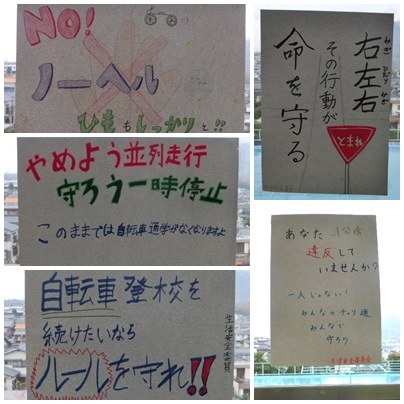 NO!
ノーヘル
ひももしっかりと!!
やめよう並列走行
守ろう一時停止
このままでは自転車通学がなくなりますよ
自転車登校を
続けたいなら
ルールを守れ!!
生活安全委員
みぎ ひだり みぎ
右左右
その行動が
命を守る
とまれ
あなた
違反して
いませんか?
一人じゃない!
みんなのチャリ通
みんなで
守ろう
生活安全委員会